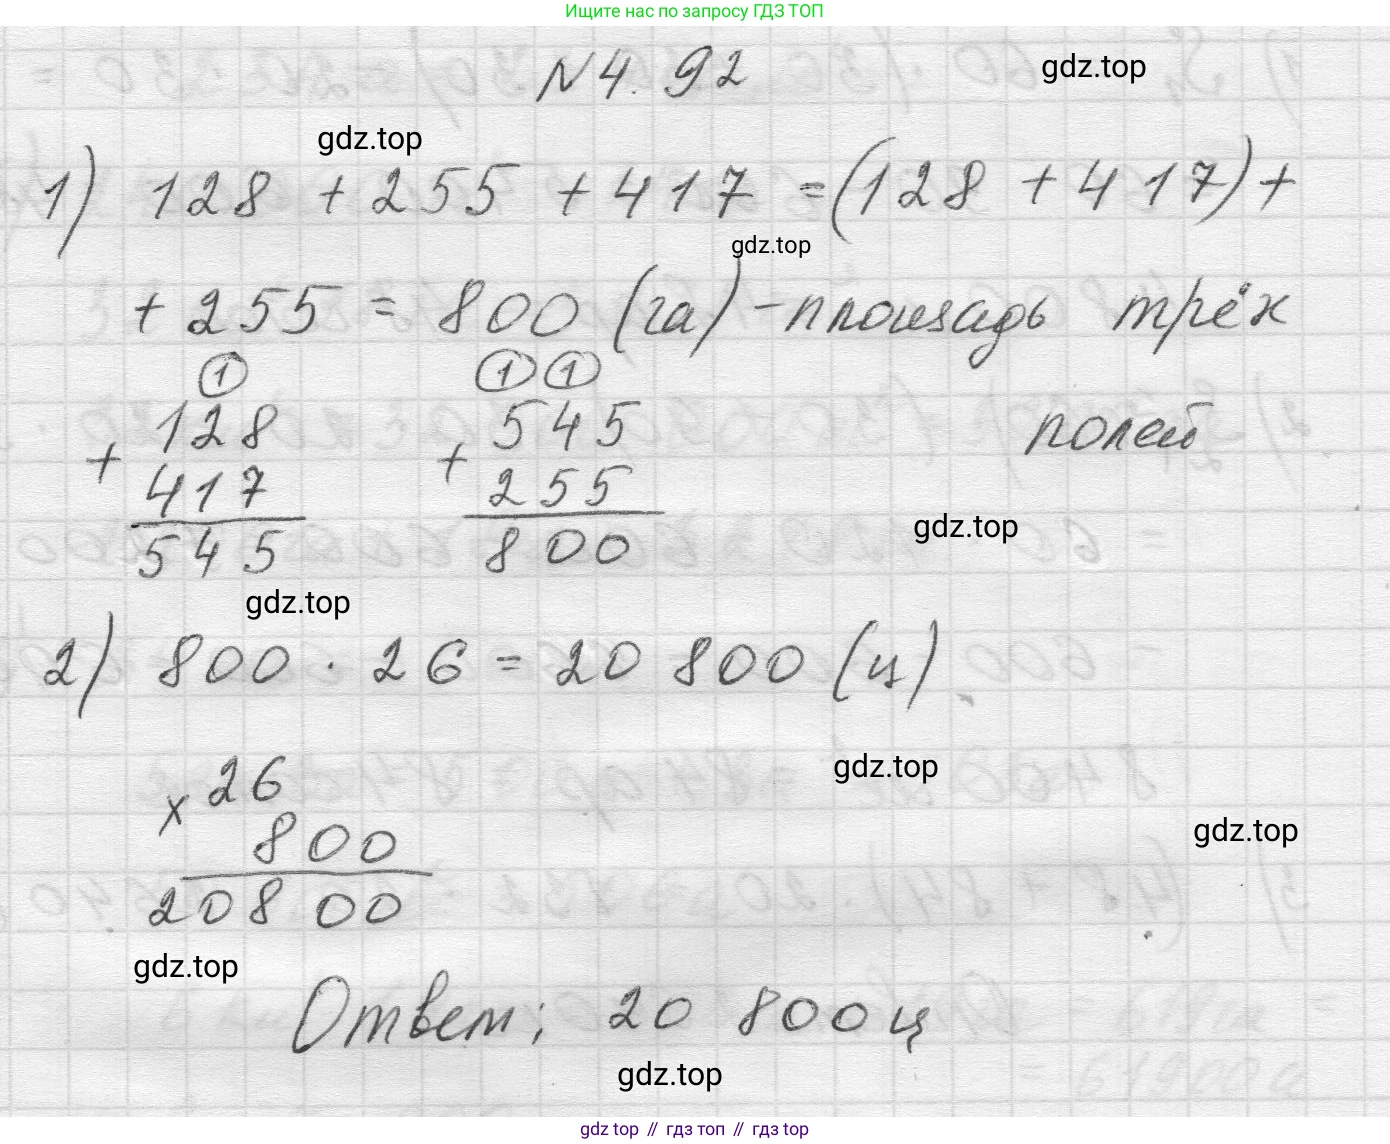 Ищите нас по запросу ГДЗ ТОП
N 4.92
gdz.top
gdz.top
1) 128 + 255 + 417 = (128 + 417) +
gdz.top
+ 255 = 800 (га) - площадь трёх
полей
① ① ①
128 545
+ +
417 255
545 800
gdz.top
gdz.top
2) 800 · 26 = 20 800 (ц).
26
×
800
20800
gdz.top
gdz.top
gdz.top
Ответ: 20 800 ц
gdz.top
gdz top // гдз топ // гдз top